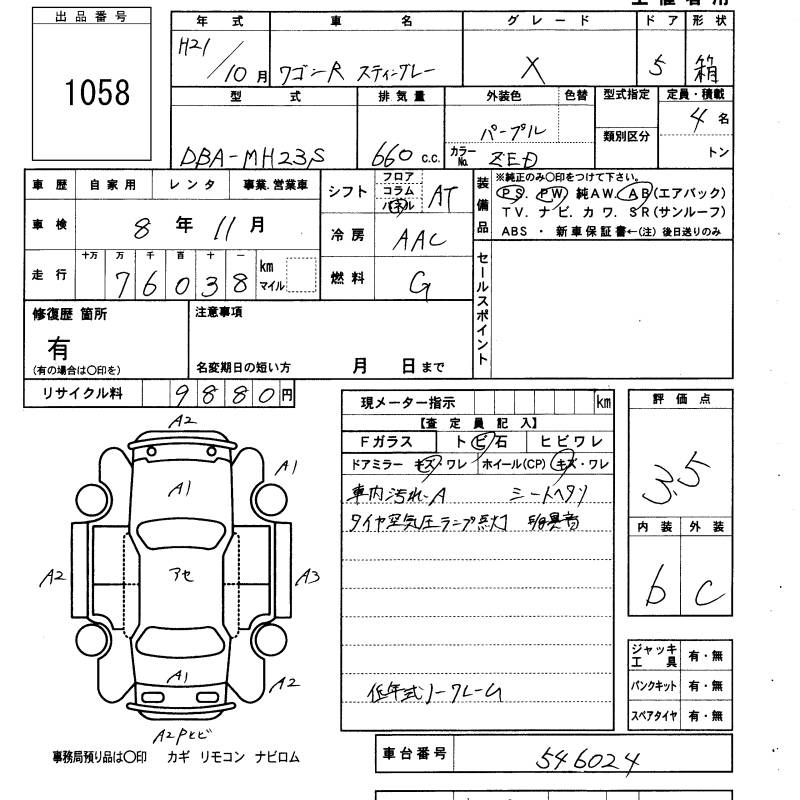 出品番号
1058
年式 車名 グレード ドア 形状
H21/10月 ワゴンR スティングレー X 5 箱
型式 排気量 外装色 色替 型式指定 定員・積載
DBA-MH23S 660 c.c. パープル 類別区分 4名
カラーNo. ZED トン
車歴 自家用 レンタ 事業.営業車
車検 8年11月
走行 十万 万 千 百 十 一
76038 km マイル
シフト フロア コラム パネル AT
冷房 AAC
燃料 G
装備品 ※純正のみ〇印をつけて下さい。
PS. PW 純AW. AB(エアバック)
TV. ナビ. カワ. SR(サンルーフ)
ABS ・ 新車保証書←(注) 後日送りのみ
セールスポイント
修復歴 箇所
有
(有の場合は〇印を)
注意事項
名変期日の短い方 月 日まで
リサイクル料 9880円
現メーター指示 km
【査定員記入】
Fガラス トビ石 ヒビワレ
ドアミラー キズ・ワレ ホイール(CP) キズ・ワレ
車内汚れA シートヘタリ
タイヤ空気圧ランプ点灯 異音
低年式ノークレーム
評価点
3.5
内装 外装
b C
ジャッキ 工具 有・無
パンクキット 有・無
スペアタイヤ 有・無
A2
A1
A1
A2 アセ A3
A1
A2
A2Pヒビ
事務局預り品は〇印 カギ リモコン ナビロム
車台番号 546024